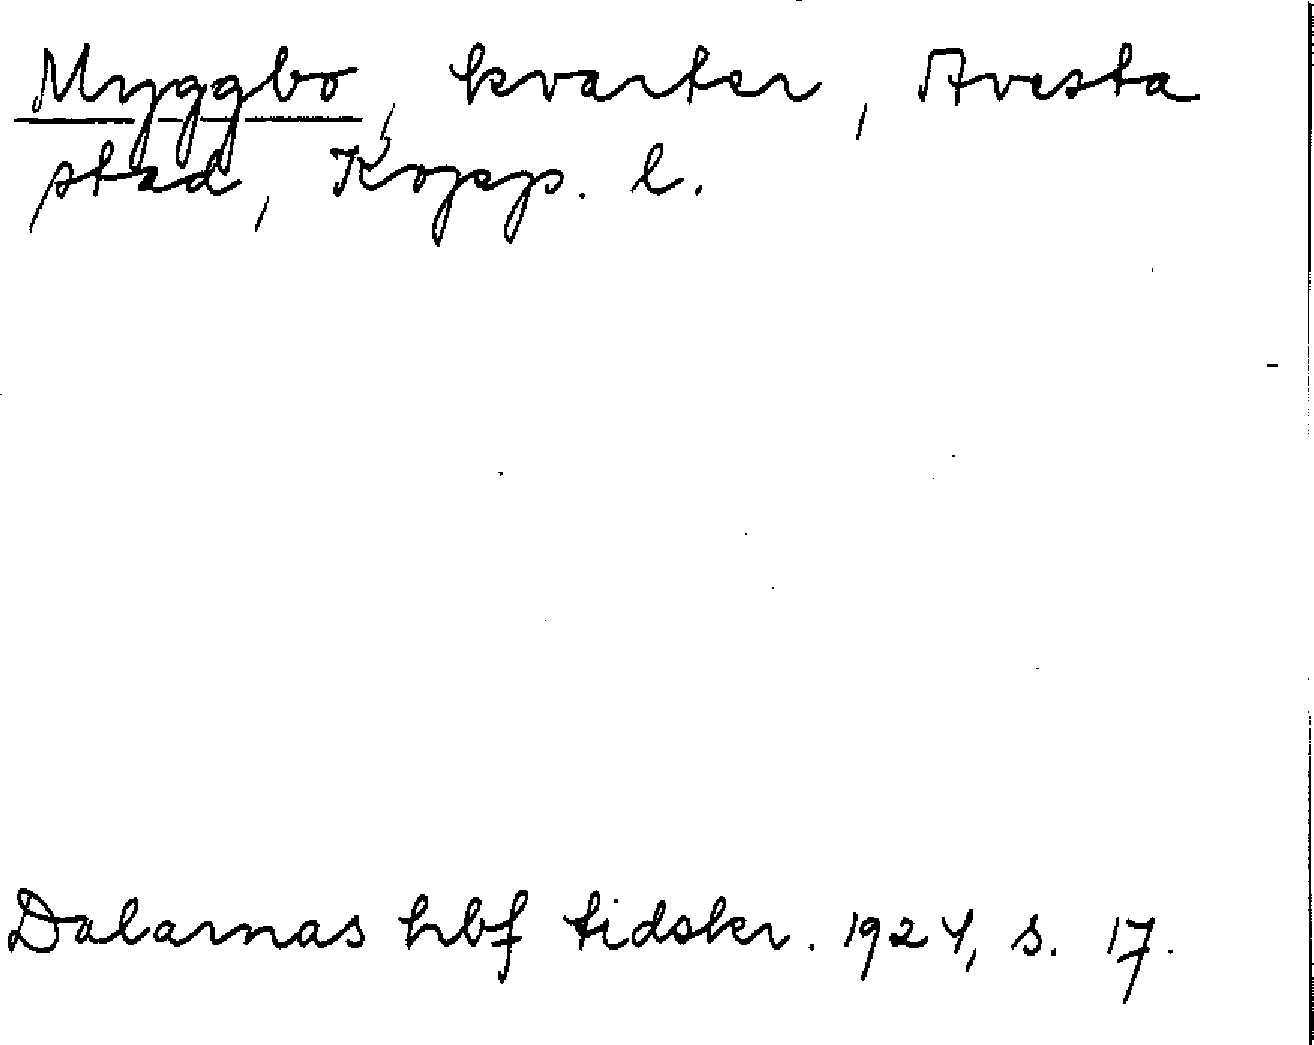 Myggbo, kvarter, Avesta
stad, Kopp. l.
Dalarnas hbf tidskr. 1924, s. 17.